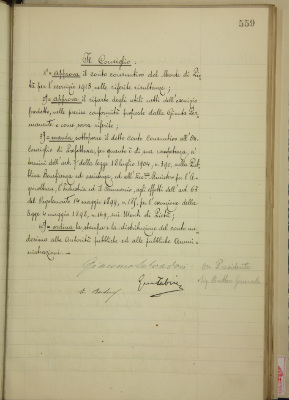 559
Il Consiglio
1° = approva il conto consuntivo del Monte di Pie-
tà per l'esercizio 1913 nelle riferite risultanze;
2° = approva il riparto degli utili netti dell'esercizio
predetto, nella precisa conformità proposta dalla Giunta Per-
manente e come sopra riferito;
3° = manda sottoporre il detto conto consuntivo all'On.
Consiglio di Prefettura, per quanto è di sua competenza, ai
termini dell'art. della legge 18 luglio 1904, n. 390, sulla Pub-
blica Beneficenza ed assistenza, ed all' Ministro per l'A-
gricoltura, l'Industria ed il Commercio, agli effetti dell'art. 63
del Regolamento 14 maggio 1899, n. 185, per l'esecuzione della
legge 4 maggio 1898, n. 169, sui Monti di Pietà;
4° = ordina la stampa e la distribuzione del conto me-
desimo alle Autorità pubbliche ed alle pubbliche Ammi-
nistrazioni. —
Giacomo Salvadori
Presidente